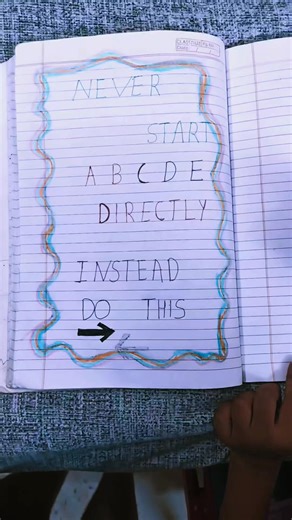 NEVER
START
A B C D E
DIRECTLY
INSTEAD
DO THIS